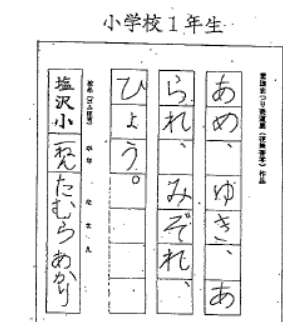 小学校1年生
あめ、ゆき、あ
られ、みぞれ、
ひょう。
塩沢小 一ねん たむらあかり